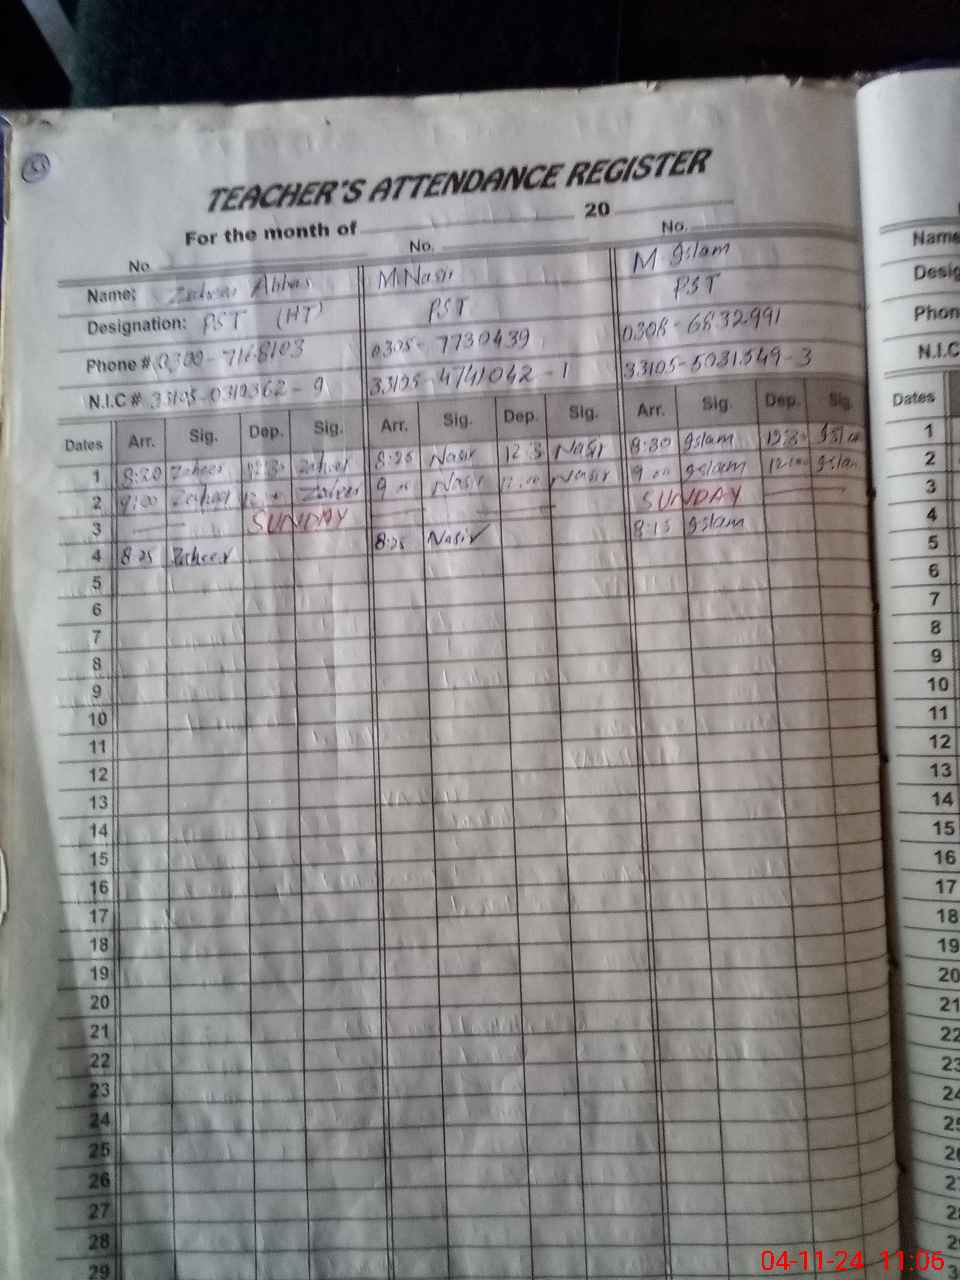 TEACHER'S ATTENDANCE REGISTER
For the month of 20
No. No. No.
Name: Abbas M. Nasir M Islam Name
Designation: PST (HT) PST PST Desig
Phone # 0300-7168103 0305-7730439 0308-6832991 Phon
N.I.C # 33105-0310362-9 33105-4741042-1 33105-5031549-3 N.I.C
Dates Arr. Sig. Dep. Sig. Arr. Sig. Dep. Sig. Arr. Sig. Dep. Sig. Dates
1 8:30 Zaheer 12:30 Zaheer 8:25 Nasir 12:3 Nasir 8:30 Islam 12:30 Islam 1
2 9:00 Zaheer 12:00 Zaheer 9:00 Nasir 12:00 Nasir 9:00 Islam 12:00 Islam 2
3 SUNDAY SUNDAY 3
4 8:25 Zaheer 8:25 Nasir 8:15 Islam 4
5 5
6 6
7 7
8 8
9 9
10 10
11 11
12 12
13 13
14 14
15 15
16 16
17 17
18 18
19 19
20 20
21 21
22 22
23 23
24 24
25 25
26
27
28
29
04-11-24 11:06